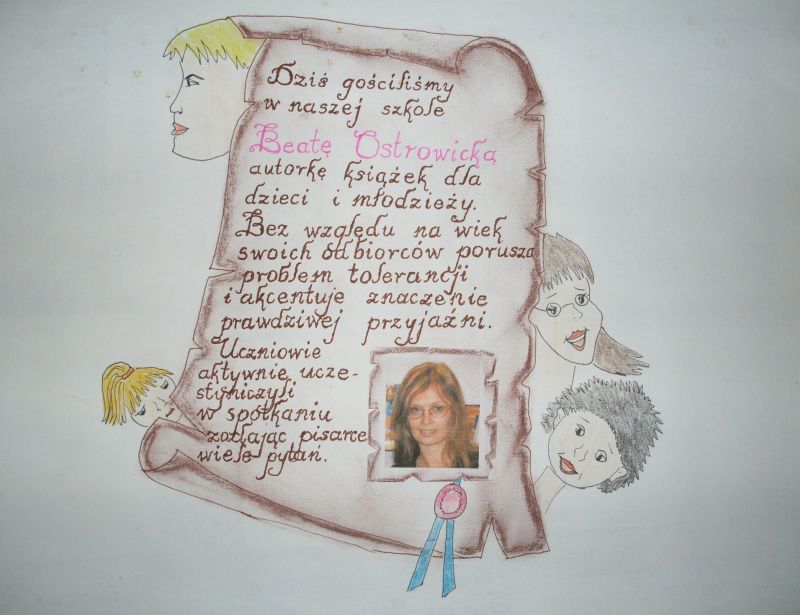 Dziś gościliśmy
w naszej szkole
Beatę Ostrowicką
autorkę książek dla
dzieci i młodzieży.
Bez względu na wiek
swoich odbiorców porusza
problem tolerancji
i akcentuje znaczenie
prawdziwej przyjaźni.
Uczniowie
aktywnie ucze-
stniczyli
w spotkaniu
zadając pisarce
wiele pytań.